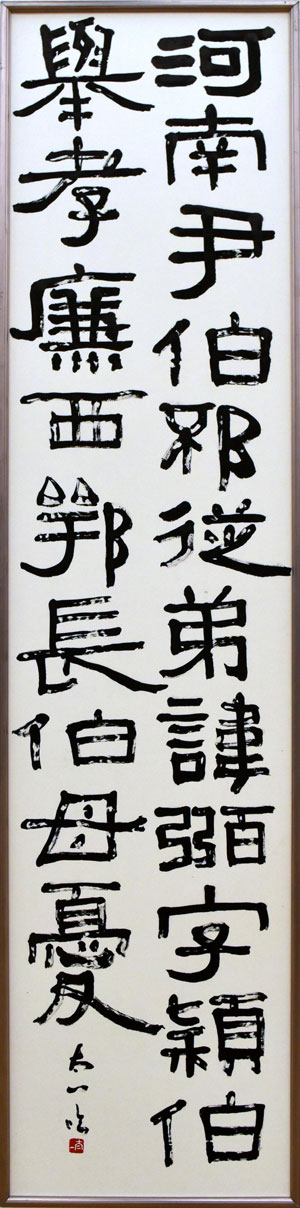 河南尹伯邪從弟諱弻字穎伯
舉孝廉西鄂長伯母憂